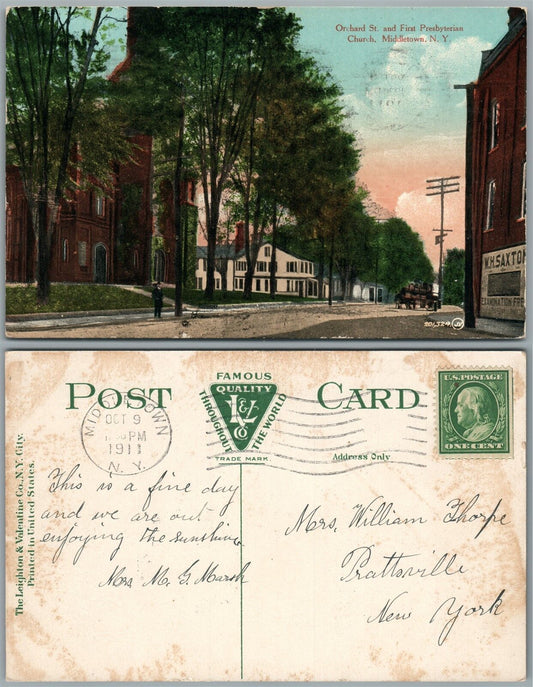 Orchard St. and First Presbyterian
Church, Middletown, N. Y.
W.H. SAXTON
EXAMINATION FREE
201,329
POST CARD
FAMOUS
QUALITY
THROUGHOUT
THE WORLD
L&V
CO
TRADE MARK
Address Only
U.S. POSTAGE
ONE CENT
MIDDLETOWN
OCT 9
PM
1911
N. Y.
The Leighton & Valentine Co., N.Y. City.
Printed in United States.
This is a fine day
and we are out
enjoying the sunshine
Mrs M. G. Marsh
Mrs. William Thorpe
Prattsville
New York